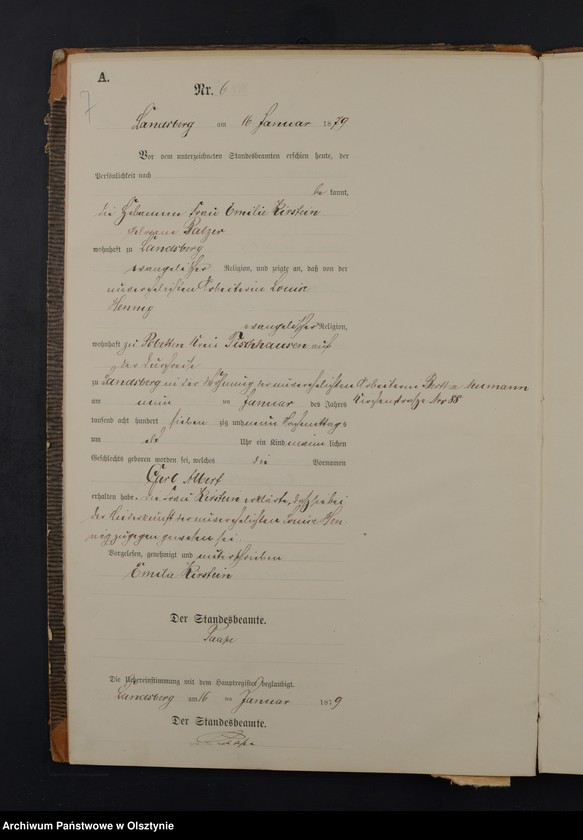 A.
7
Nr. 6
Landsberg am 16 Januar 1879
Vor dem unterzeichneten Standesbeamten erschien heute, der
Persönlichkeit nach
be kannt,
die Hebamme Frau Emilie Kirstein
geborene Patzer
wohnhaft zu Landsberg
evangelischer Religion, und zeigte an, daß von der
unverehelichten Arbeiterin Louise
Hennig
evangelischer Religion,
wohnhaft zu Kreis Fischhausen auf
der Durchreise
zu Landsberg in der Wohnung der unverehelichten Arbeiterin Neumann
Kirchenstraße Nro 88
am neun ten Januar des Jahres
tausend acht hundert sieben zig und neun Vormittags
um elf Uhr ein Kind männ lichen
Geschlechts geboren worden sei, welches die Vornamen
Carl Albert
erhalten habe. Die Frau Kirstein erklärte, daß sie bei
der Niederkunft der unverehelichten Louise Hen
nig zugegen gewesen sei.
Vorgelesen, genehmigt und unterschrieben
Emilie Kirstein
Der Standesbeamte.
Die Uebereinstimmung mit dem Hauptregister beglaubigt.
Landsberg am 16 ten Januar 1879
Der Standesbeamte.
Archiwum Państwowe w Olsztynie